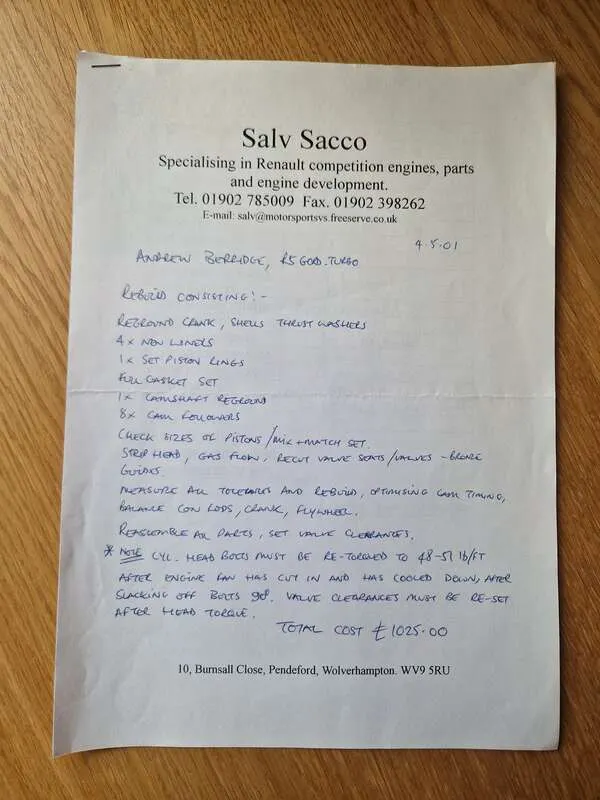 Salv Sacco
Specialising in Renault competition engines, parts
and engine development.
Tel. 01902 785009 Fax. 01902 398262
E-mail: salv@motorsportsvs.freeserve.co.uk
4.5.01
ANDREW BERRIDGE, R5 GORD. TURBO
REBUILD CONSISTING:-
REGROUND CRANK, SHELLS THRUST WASHERS
4x NEW LINERS
1x SET PISTON RINGS
FULL GASKET SET
1x CAMSHAFT REGROUND
8x CAM FOLLOWERS
CHECK SIZES OF PISTONS/MIX + MATCH SET.
STRIP HEAD, GAS FLOW, RECUT VALVE SEATS/VALVES - BRONZE
GUIDES
MEASURE ALL TOLERANCES AND REBUILD, OPTIMISING CAM TIMING,
BALANCE CON RODS, CRANK, FLYWHEEL.
REASSEMBLE ALL PARTS, SET VALVE CLEARANCES.
* NOTE CYL. HEAD BOLTS MUST BE RE-TORQUED TO 48-51 lb/FT
AFTER ENGINE FAN HAS CUT IN AND HAS COOLED DOWN, AFTER
SLACKING OFF BOLTS 90°. VALVE CLEARANCES MUST BE RE-SET
AFTER HEAD TORQUE.
TOTAL COST £1025.00
10, Burnsall Close, Pendeford, Wolverhampton. WV9 5RU